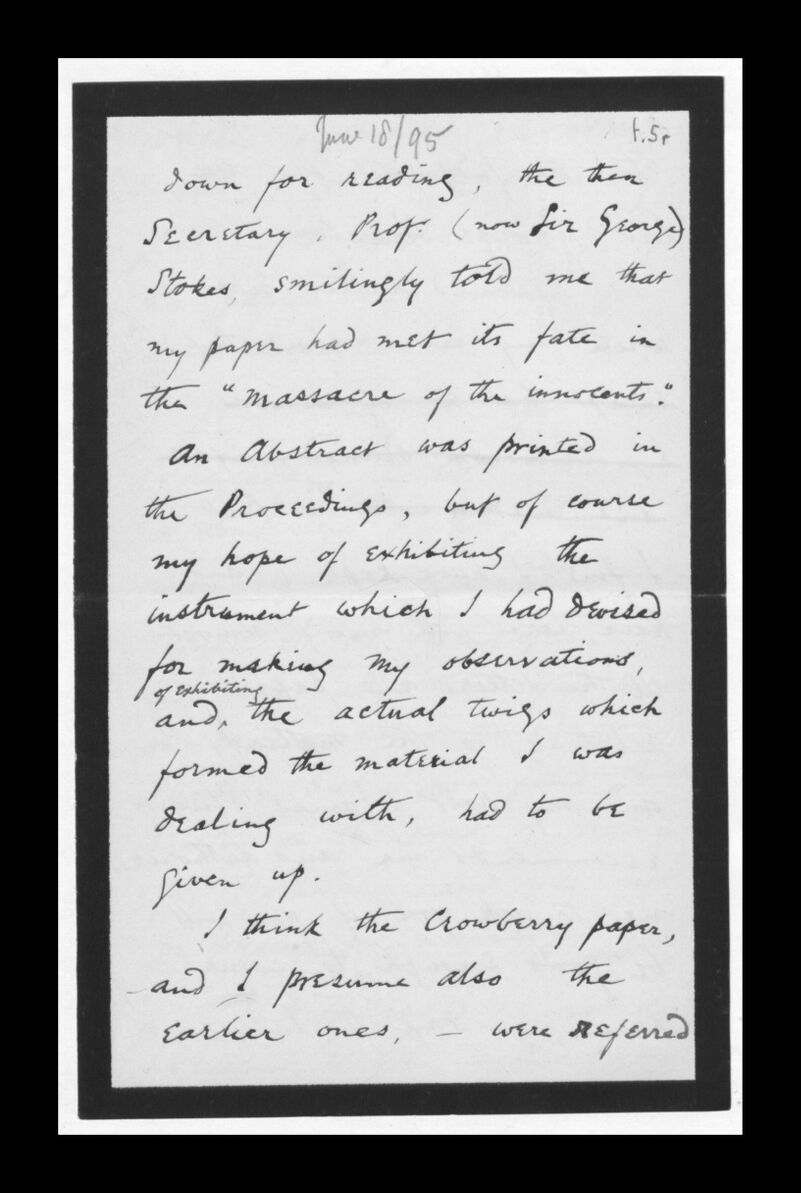 June 18/95
f.5r
down for reading, the then
Secretary, Prof. (now Sir George)
Stokes, smilingly told me that
my paper had met its fate in
the "massacre of the innocents."
An Abstract was printed in
the Proceedings, but of course
my hope of exhibiting the
instrument which I had devised
for making my observations,
of exhibiting
and, the actual twigs which
formed the material I was
dealing with, had to be
given up.
I think the Crowberry paper,
and I presume also the
earlier ones, – were referred